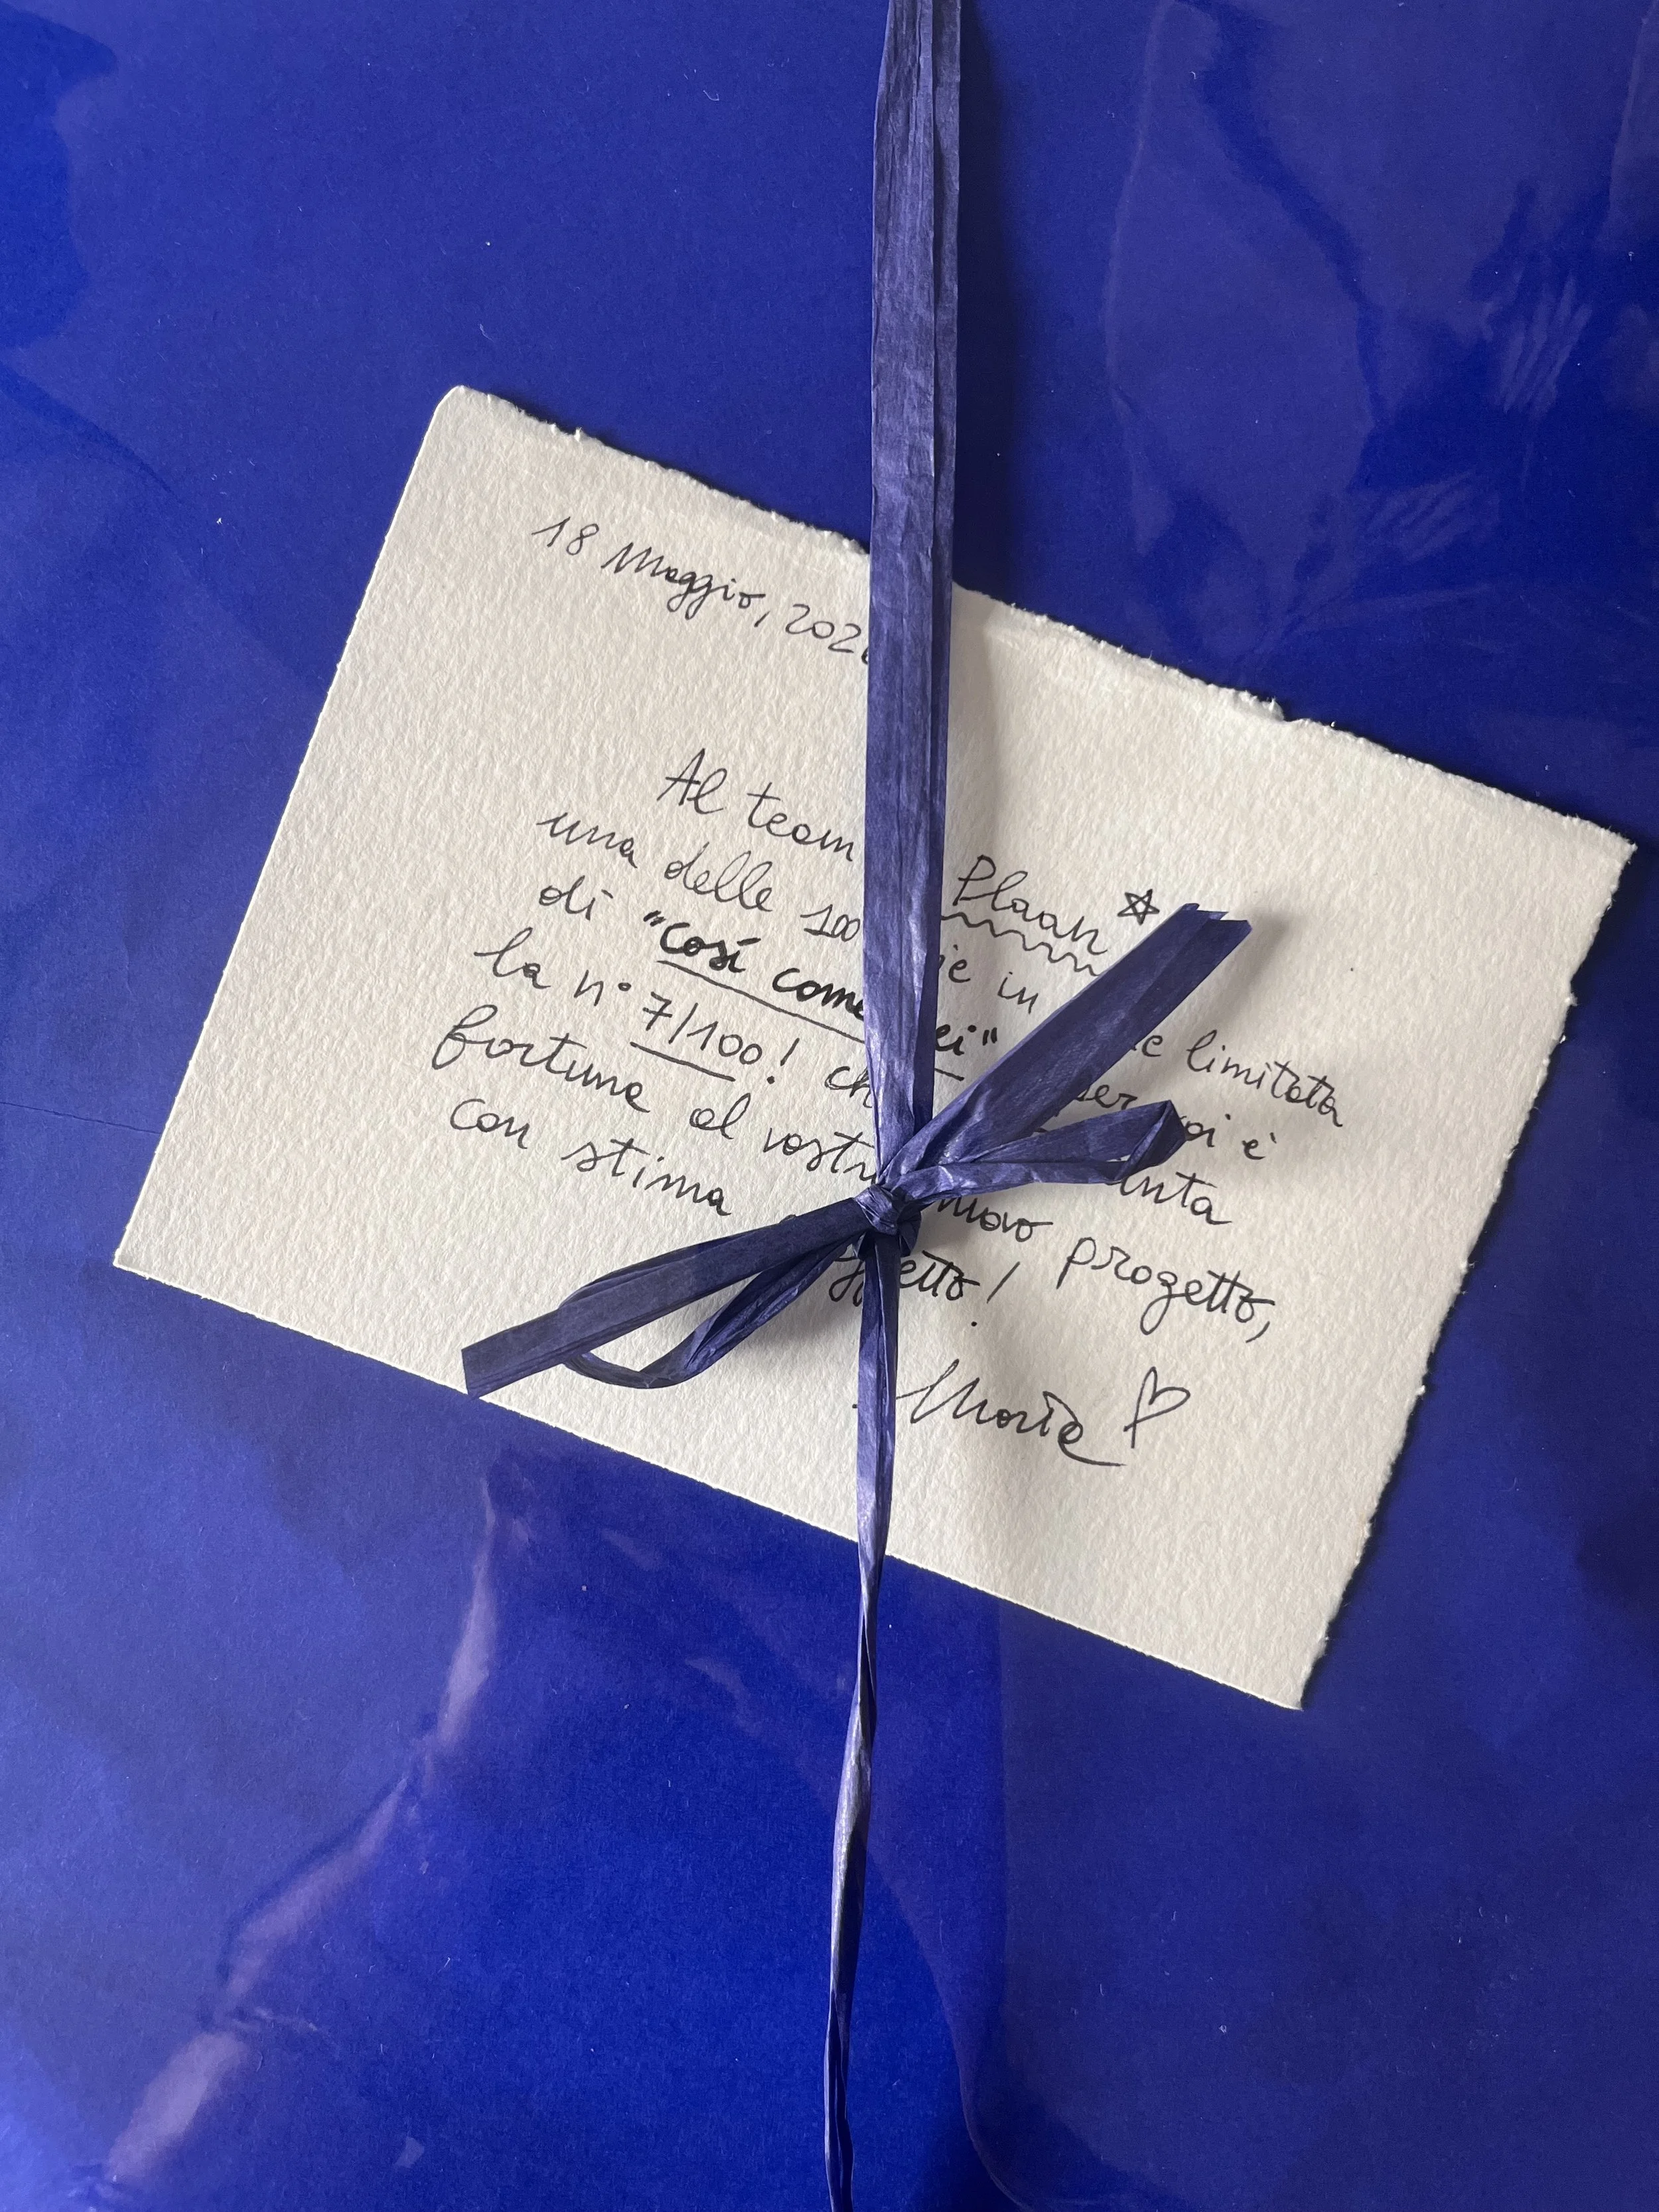 18 Maggio, 202
Al team Plaan
una delle 100 in limitata
di "così come ei" per voi è
la n° 7/100! ch
fortuna al vostro nuovo progetto,
con stima
Maria